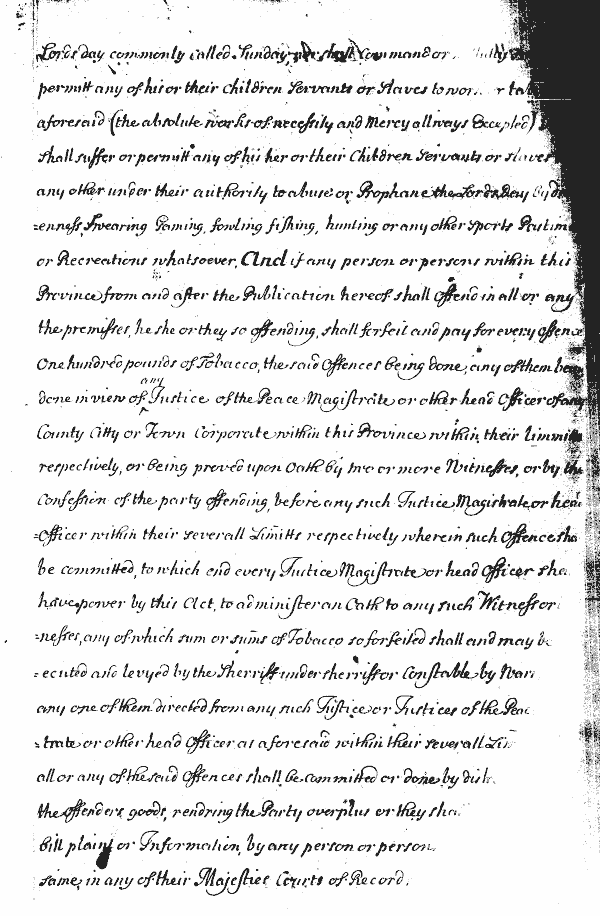 Lords day commonly called Sunday, nor shall Command or
permitt any of his or their Children Servants or Slaves to wor
aforesaid (the absolute works of necessity and Mercy allways Excepted)
shall suffer or permitt any of his her or their Children Servants or slaves
any other under their authority to abuse or Prophane the Lords Day by dr
=enness, Swearing Gaming, fowling fishing, hunting or any other Sports Pastim
or Recreations whatsoever, And if any person or persons within this
Province from and after the Publication hereof shall Offend in all or any
the premisses, he she or they so offending, shall forfeit and pay for every offence
One hundred pounds of Tobacco, the said Offences being done, any of them bee
done in view of any Justice of the Peace Magistrate or other head Officer of any
County Citty or Town Corporate within this Province within their Limmitts
respectively, or being proved upon Oath by two or more Witnesses, or by the
Confession of the party offending, before any such Justice Magistrate or head
=Officer within their severall Limitts respectively wherein such Offence sha
be committed, to which end every Justice Magistrate or head Officer sha
have power by this Act, to administer an Oath to any such Witness or
=nesses, any of which sum or sums of Tobacco so forfeited shall and may be
=ecuted and levyed by the Sherriff undersherriff or Constable by Warr
any one of them directed from any such Justice or Justices of the Peac
=trate or other head Officer as aforesaid within their severall Lim
all or any of the said Offences shall be committed or done by dist
the Offenders goods, rendring the Party overplus or they sha
bill plaint or Information, by any person or person
same, in any of their Majesties Courts of Record,